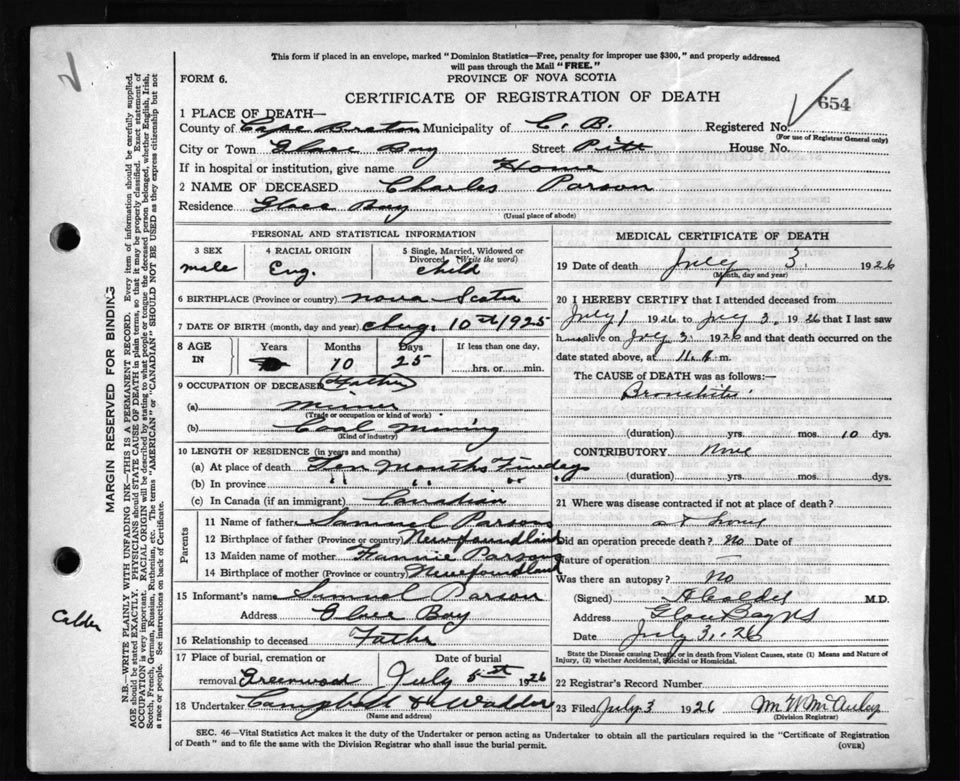 This form if placed in an envelope, marked "Dominion Statistics—Free, penalty for improper use $300," and properly addressed
will pass through the Mail "FREE."
FORM 6.
PROVINCE OF NOVA SCOTIA
CERTIFICATE OF REGISTRATION OF DEATH
654
1 PLACE OF DEATH—
County of Cape Breton Municipality of C. B. Registered No.
(For use of Registrar General only)
City or Town Glace Bay Street Pitt House No.
If in hospital or institution, give name Home
2 NAME OF DECEASED Charles Parson
Residence Glace Bay
(Usual place of abode)
PERSONAL AND STATISTICAL INFORMATION
3 SEX 4 RACIAL ORIGIN 5 Single, Married, Widowed or
Divorced (Write the word)
male Eng. child
6 BIRTHPLACE (Province or country) Nova Scotia
7 DATE OF BIRTH (month, day and year) Aug. 10th 1925
8 AGE IN Years Months Days If less than one day,
10 25 hrs. or min.
9 OCCUPATION OF DECEASED Father
(a) Miner
(Trade or occupation or kind of work)
(b) Coal Mining
(Kind of industry)
10 LENGTH OF RESIDENCE (in years and months)
(a) At place of death Ten Months Five days
(b) In province " " "
(c) In Canada (if an immigrant) Canadian
Parents
11 Name of father Samuel Parsons
12 Birthplace of father (Province or country) Newfoundland
13 Maiden name of mother Fannie Parsons
14 Birthplace of mother (Province or country) Newfoundland
15 Informant's name Samuel Parson
Address Glace Bay
16 Relationship to deceased Father
17 Place of burial, cremation or Date of burial
removal Greenwood July 5th 1926
18 Undertaker Campbell &
(Name and address)
MEDICAL CERTIFICATE OF DEATH
19 Date of death July 3. 1926
(Month, day and year)
20 I HEREBY CERTIFY that I attended deceased from
July 1 1926 to July 3. 1926 that I last saw
him alive on July 3. 1926 and that death occurred on
date stated above, at 11. m.
The CAUSE of DEATH was as follows:—
Bronchitis
(duration) yrs. mos. 10 dys.
CONTRIBUTORY None
(duration) yrs. mos. dys.
21 Where was disease contracted if not at place of death?
at home
Did an operation precede death? No Date of
Nature of operation —
Was there an autopsy? No
(Signed) A Calder M.D.
Address Glace Bay NS
Date July 3. 26
State the Disease causing Death, or in death from Violent Causes, state (1) Means and Nature of
Injury, (2) whether Accidental, Suicidal or Homicidal.
22 Registrar's Record Number
23 Filed July 3 1926 McAuley
(Division Registrar)
SEC. 46—Vital Statistics Act makes it the duty of the Undertaker or person acting as Undertaker to obtain all the particulars required in the "Certificate of Registration
of Death" and to file the same with the Division Registrar who shall issue the burial permit.
(OVER)
MARGIN RESERVED FOR BINDING
N.B.—WRITE PLAINLY WITH UNFADING INK—THIS IS A PERMANENT RECORD. Every item of information should be carefully supplied.
AGE should be stated EXACTLY. PHYSICIANS should STATE CAUSE OF DEATH in plain terms, so that it may be properly classified. Exact statement of
OCCUPATION is very important. RACIAL ORIGIN will be described by stating to what people or tongue the deceased person belonged, whether English, Irish,
Scotch, French, German, Russian, Ruthenian, etc. The terms "AMERICAN" or "CANADIAN" SHOULD NOT BE USED as they express citizenship but not
a race or people. See instructions on back of Certificate.
Calder